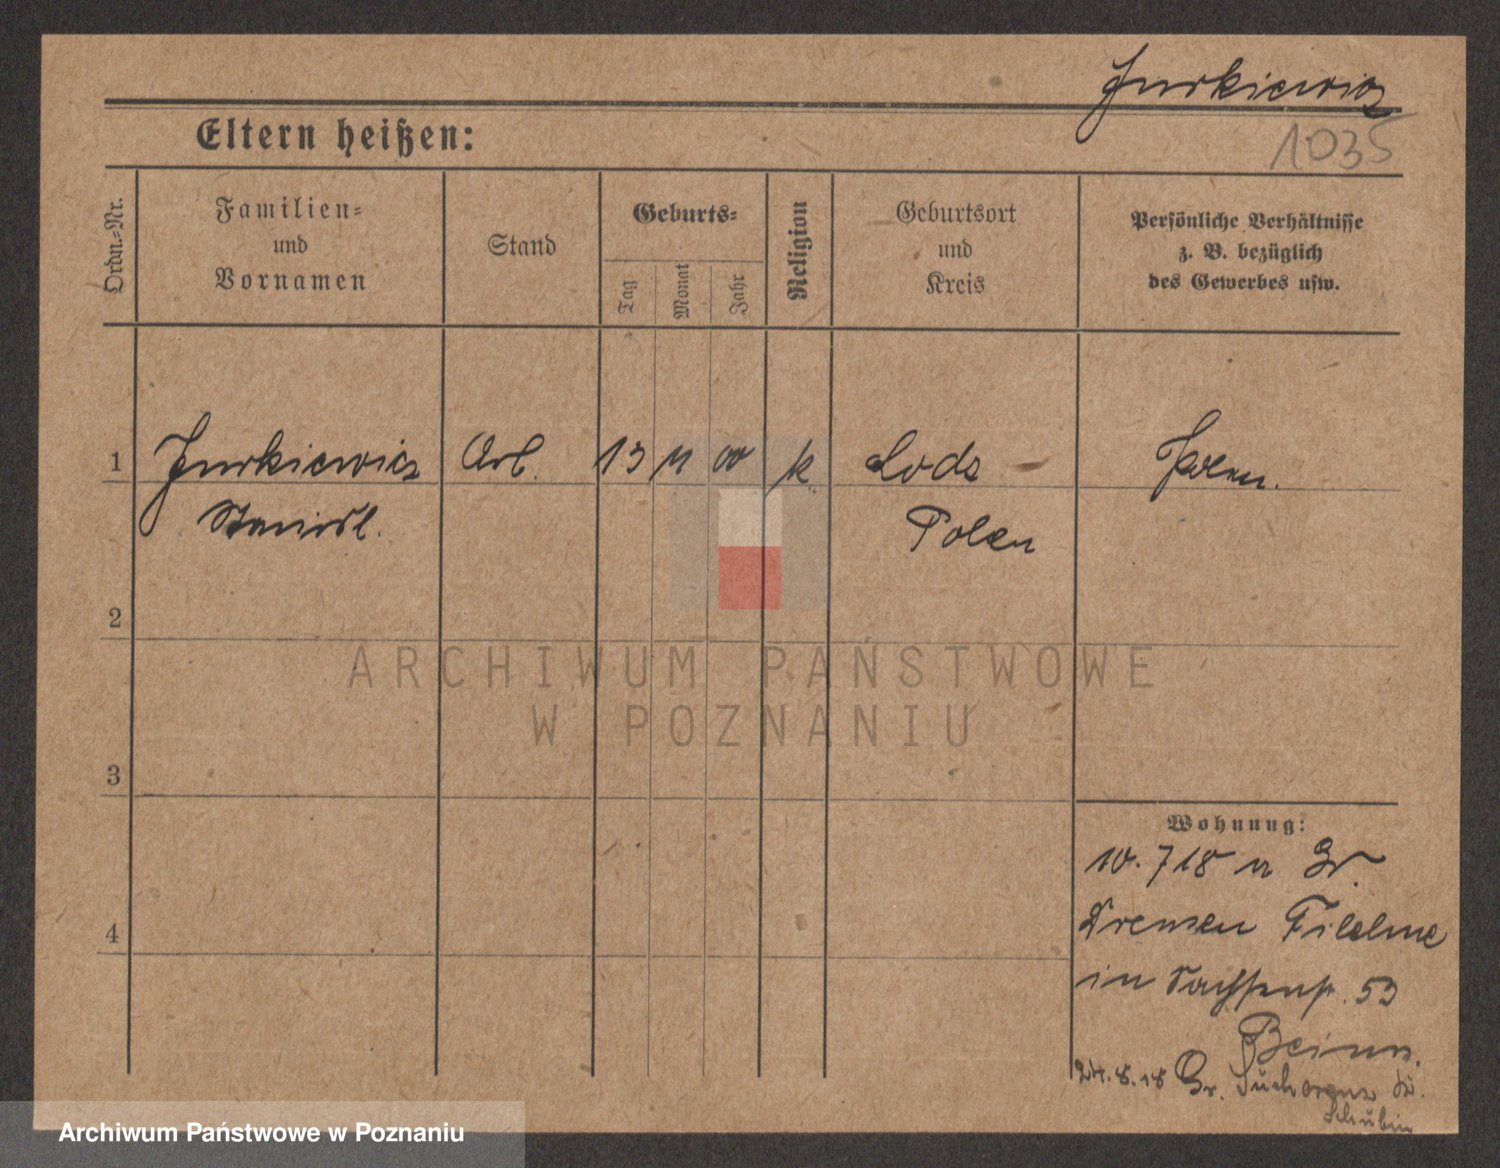 Jurkiewicz
1035
Eltern heißen:
Ordn.-Nr.
Familien-
und
Vornamen
Stand
Geburts-
Tag
Monat
Jahr
Religion
Geburtsort
und
Kreis
Persönliche Verhältnisse
z. B. bezüglich
des Gewerbes usw.
1
Jurkiewicz Arb. 13 11 00 k Lodz
Stanisl. Polen
2
ARCHIWUM PAŃSTWOWE
W POZNANIU
3
Wohnung:
10. 7 18 n Gr.
4
in 53
24.8.18 Gr.
Schubin
Archiwum Państwowe w Poznaniu